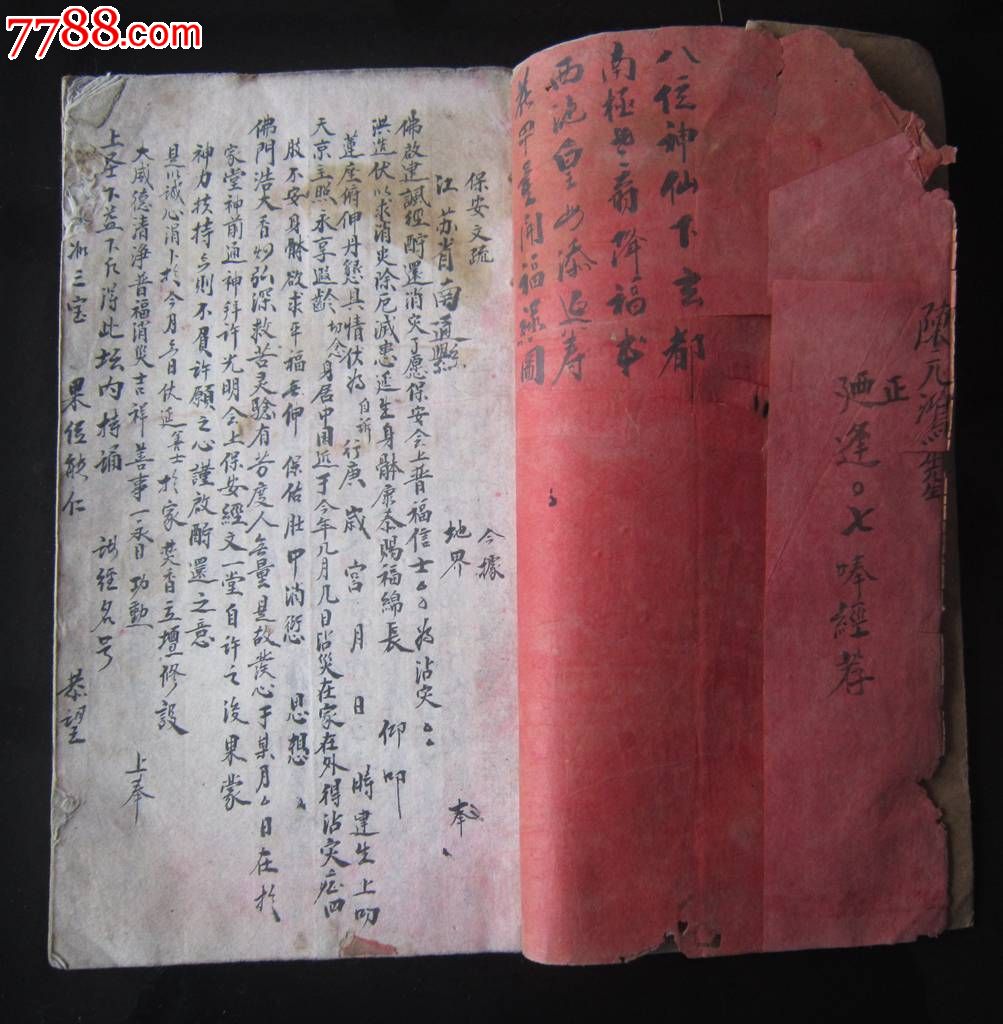 7788.com
陳元鴻
正
逢。七唪經荐
八位神仙下玄都
南極
翁降福
西池皇母添
壽
開福祿圖
保安文疏
江苏省南通縣 今據 地界 奉
佛啟建諷經酧還消灾了愿保安会上普福信士。。為沾灾。。
洪造伏以求消灾除厄減患延生身體康泰賜福綿長 仰叩
蓮座俯伸丹懇具情伏為 自訴 行庚 歲 宮 月 日 時建生上叨
天京主照永享遐齡 切念 身居中国近于今年几月几日沾災在家在外得沾灾症四
肢不安身體欲求平福
仰 保佑肚中消愆 思想
佛門浩大
弘深救苦灵驗有苦度人
量是故發心于某月 日在於
家堂神前通神拜許光明会上保安經文一堂自許之後果蒙
神力扶持
則不負許願之心謹啟酧還之意
具以誠心涓卜於今月
日伏延善士於家焚香立壇修設
大威德清淨普福消災吉祥善事一永日功勳 上奉
上圣下
下
得此坛内持誦 諸經名号 恭望
三宝 果位能仁